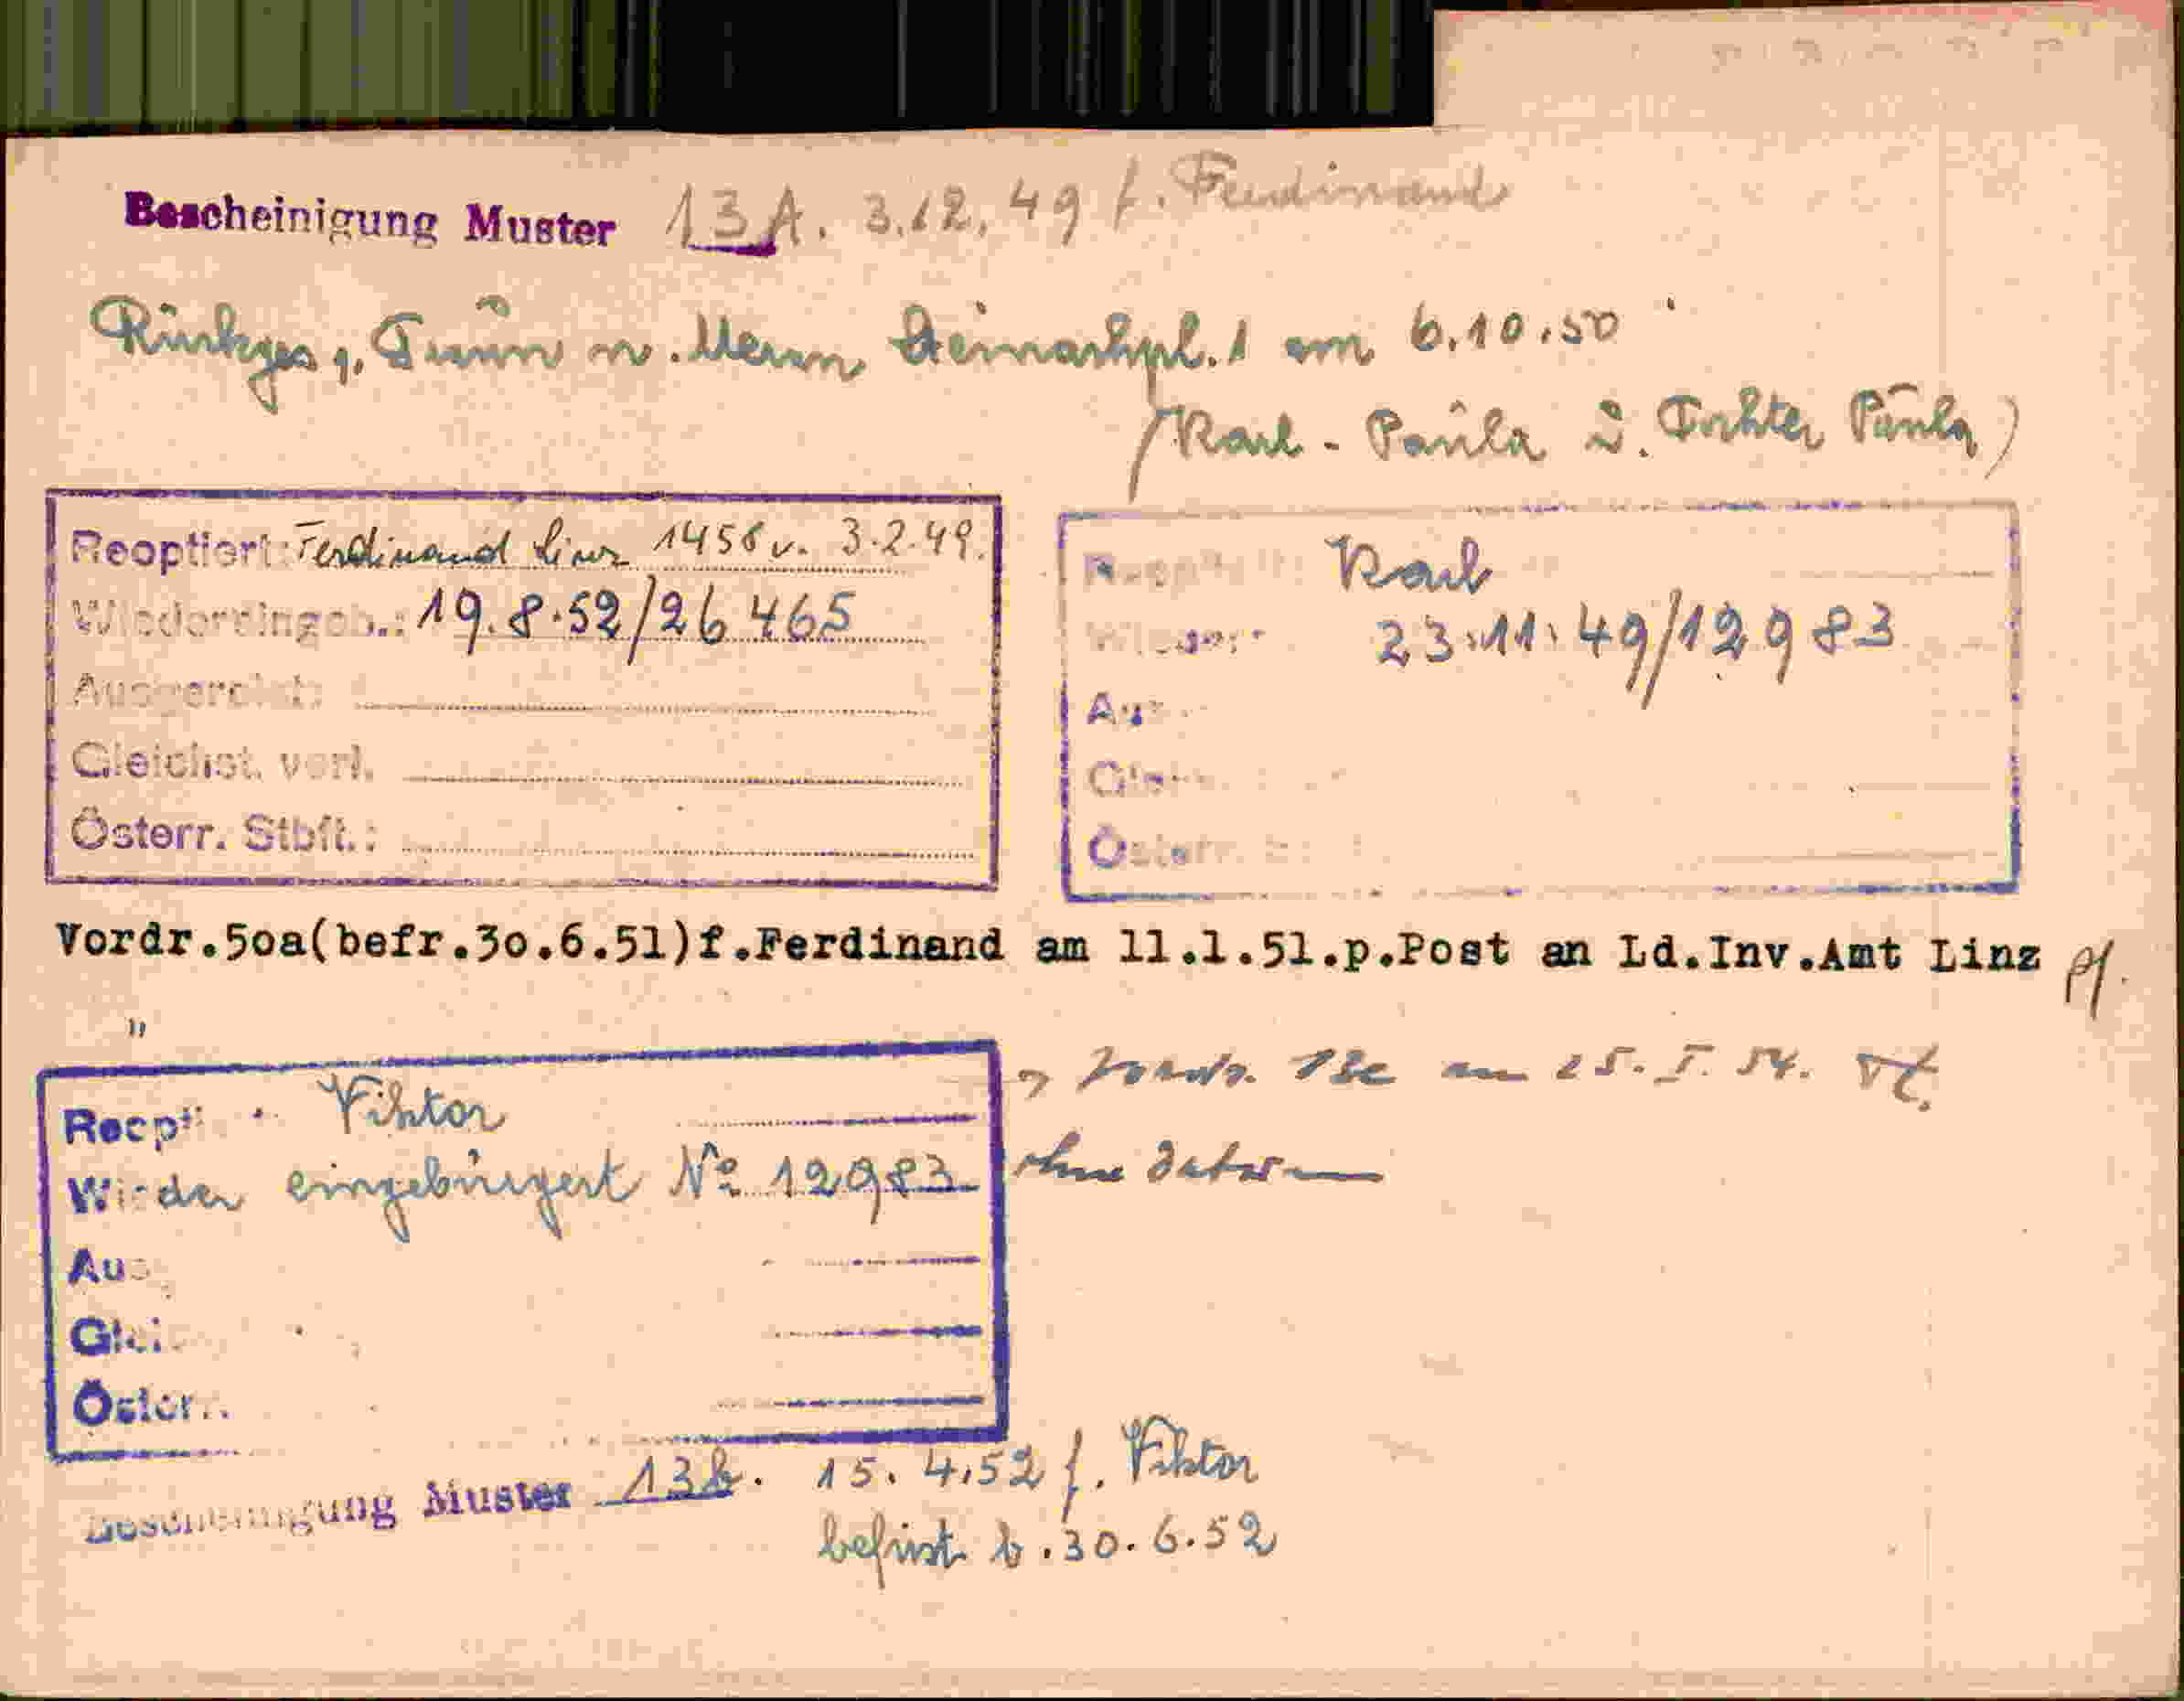 Bescheinigung Muster 13A. 3.12.49 f. Ferdinand
Rückges. n. Meran am 6.10.50
(Karl - Paula u. Tochter Paula)
Reoptiert: Ferdinand Linz 1456 v. 3.2.49.
Wiedereingeb.: 19.8.52/26465
Ausgereist:
Gleichst. verl.
Österr. Stbft.:
Karl
23.11.49/12983
Vordr.5oa(befr.3o.6.51)f.Ferdinand am 11.1.51.p.Post an Ld.Inv.Amt Linz
"
Reopti Viktor
Wieder eingebürgert No 12983
Aus
Glei
Österr.
Vordr. 13c am 25. I. 54.
ohne Datum
Bescheinigung Muster 13b. 15.4.52 f. Viktor
befrist. b. 30.6.52